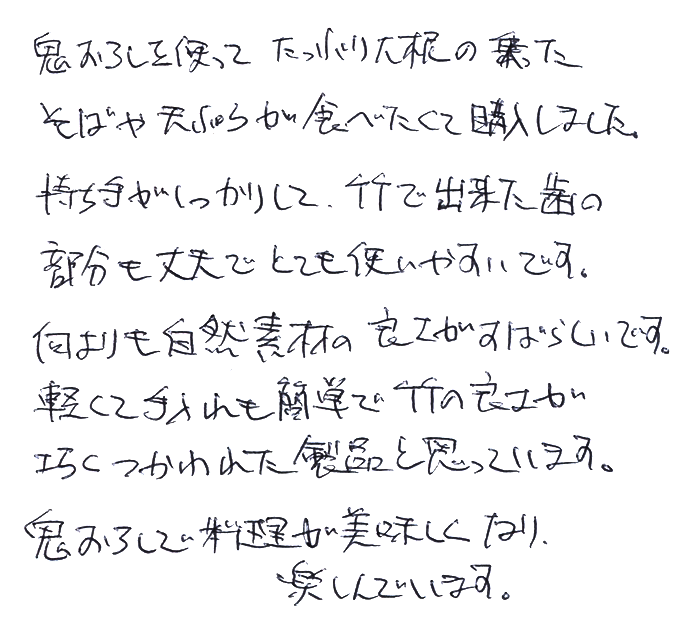 鬼おろしを使って たっぷり大根の乗った
そばや天ぷらが食べたくて購入しました。
持ち手がしっかりして、竹で出来た歯の
部分も丈夫でとても使いやすいです。
何よりも自然素材の良さがすばらしいです。
軽くて手入れも簡単で竹の良さが
巧くつかわれた製品と思っています。
鬼おろしで料理が美味しくなり、
楽しんでいます。